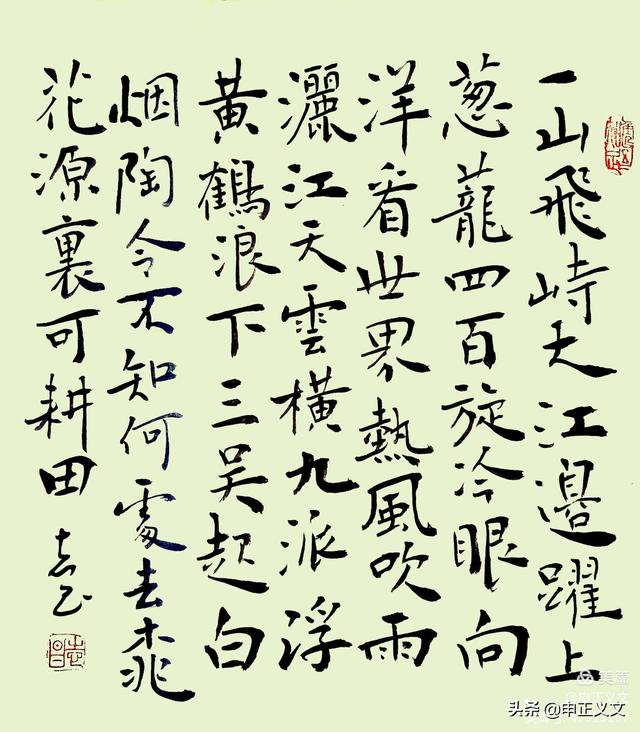 一山飛峙大江邊躍上
葱蘢四百旋冷眼向
洋看世界熱風吹雨
灑江天雲橫九派浮
黃鶴浪下三吳起白
烟陶令不知何處去桃
花源裏可耕田
美篇
头条 @申正义文